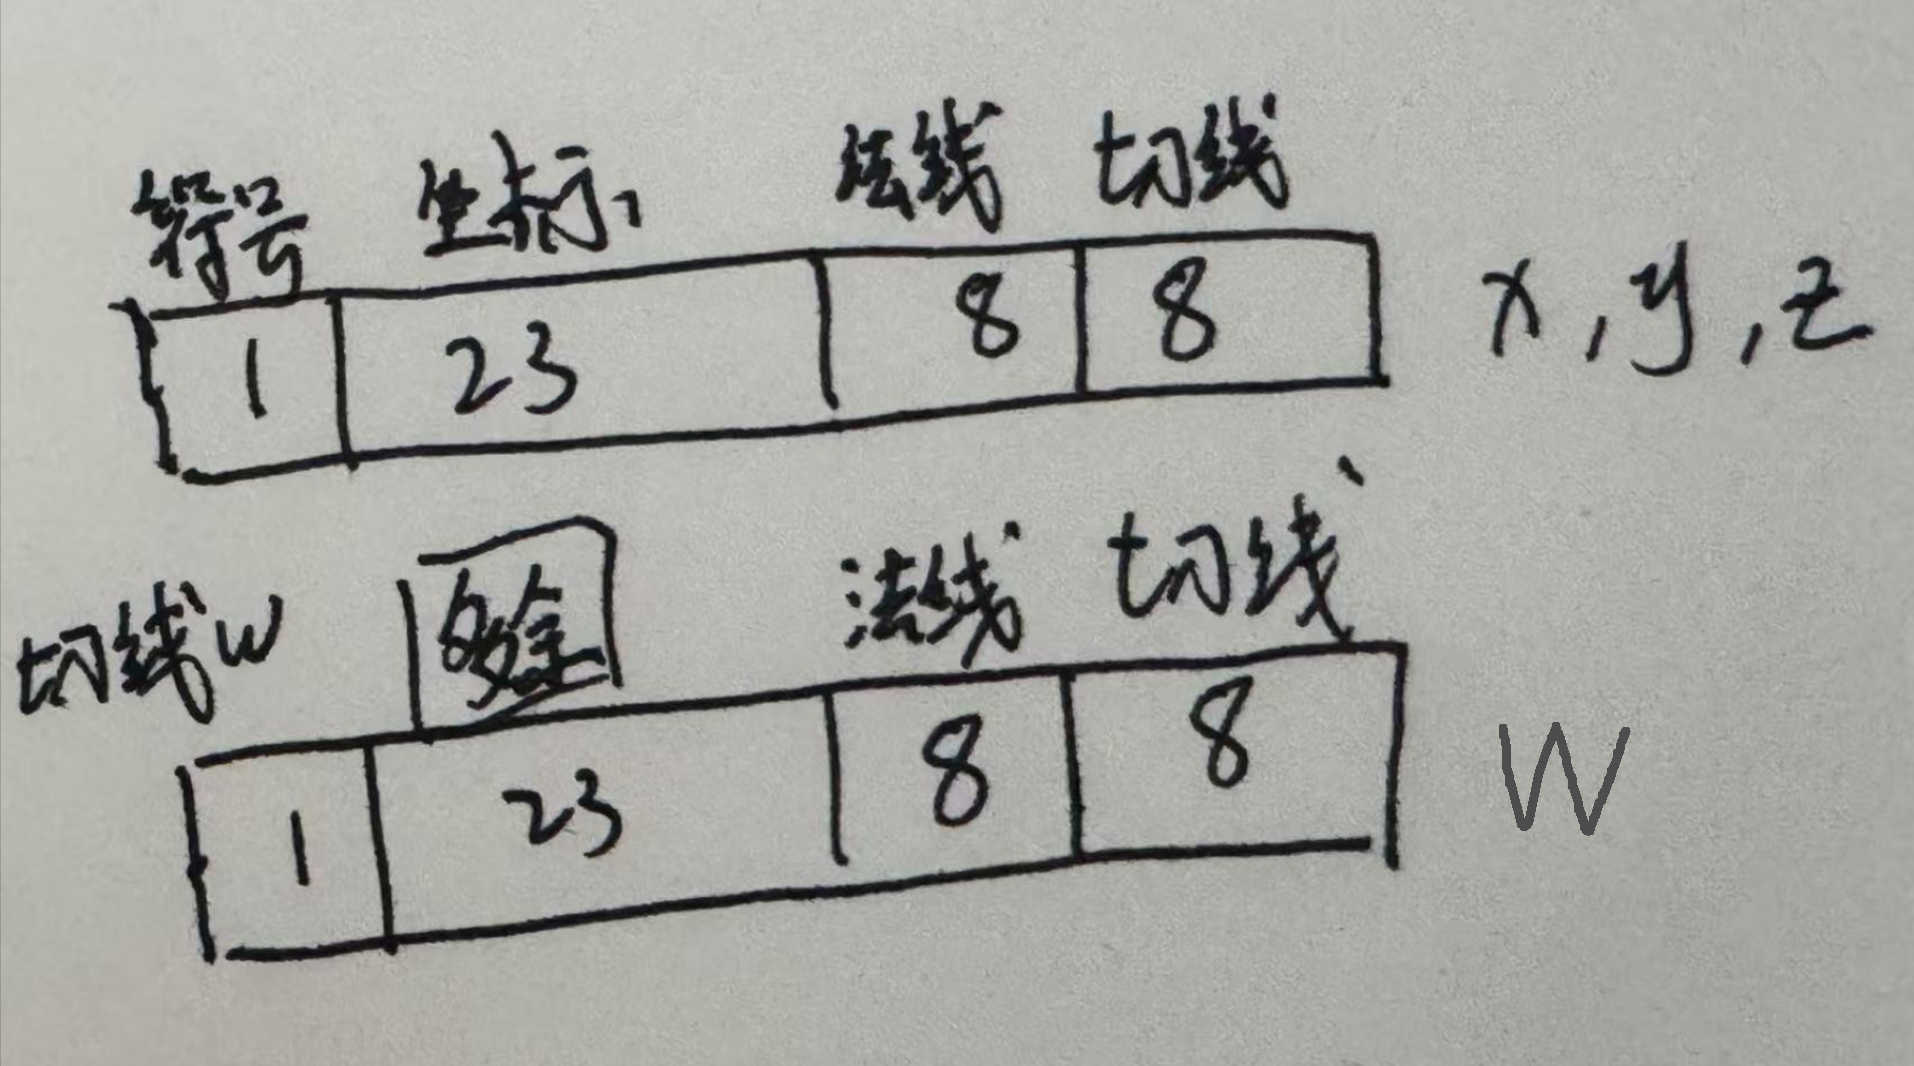 符号 坐标 法线 切线
1 23 8 8 x,y,z
切线w 多余 法线 切线
1 23 8 8 W